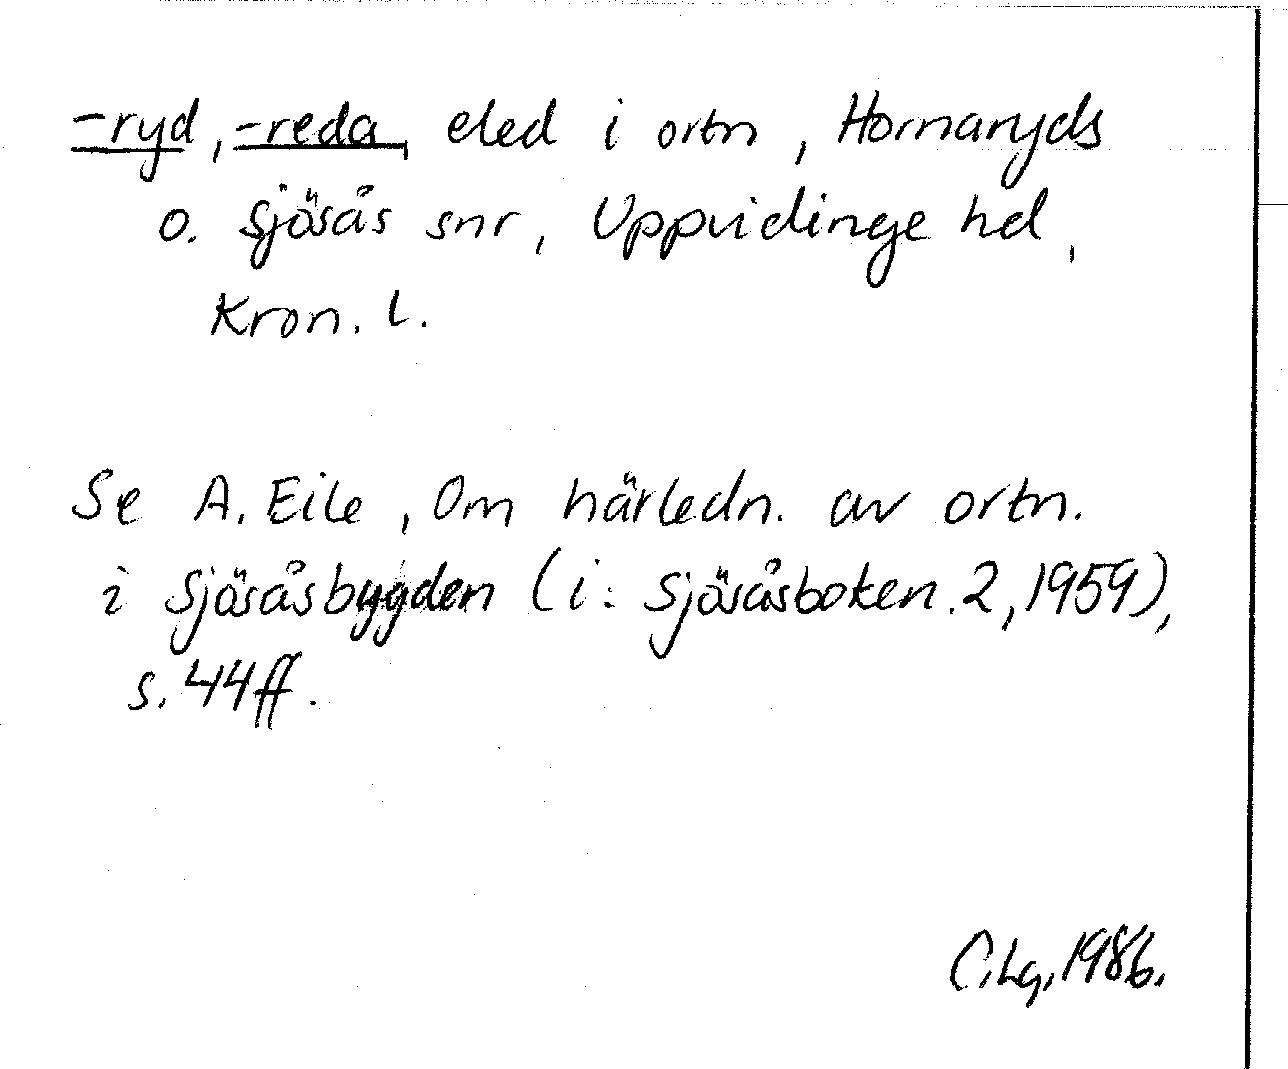 -ryd, -reda, eled i ortn, Hornaryds
o. Sjösås snr, Uppvidinge hd,
Kron. l.
Se A. Eile, Om härledn. av ortn.
i Sjösåsbygden (i: Sjösåsboken. 2, 1959),
s. 44ff.
C. Lg, 1986.